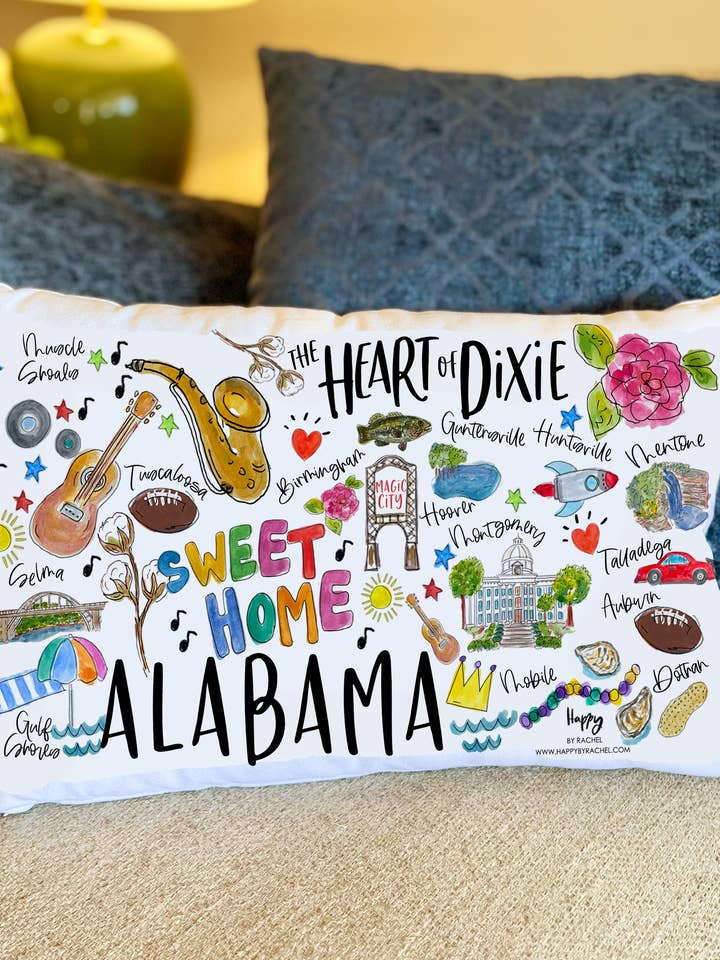 THE HEART OF DIXIE
Muscle
Shoals
Guntersville
Huntsville
Mentone
Tuscaloosa
Birmingham
MAGIC
CITY
Hoover
Montgomery
Talladega
Selma
SWEET
HOME
ALABAMA
Auburn
Mobile
Dothan
Gulf
Shores
Happy
BY RACHEL
WWW.HAPPYBYRACHEL.COM